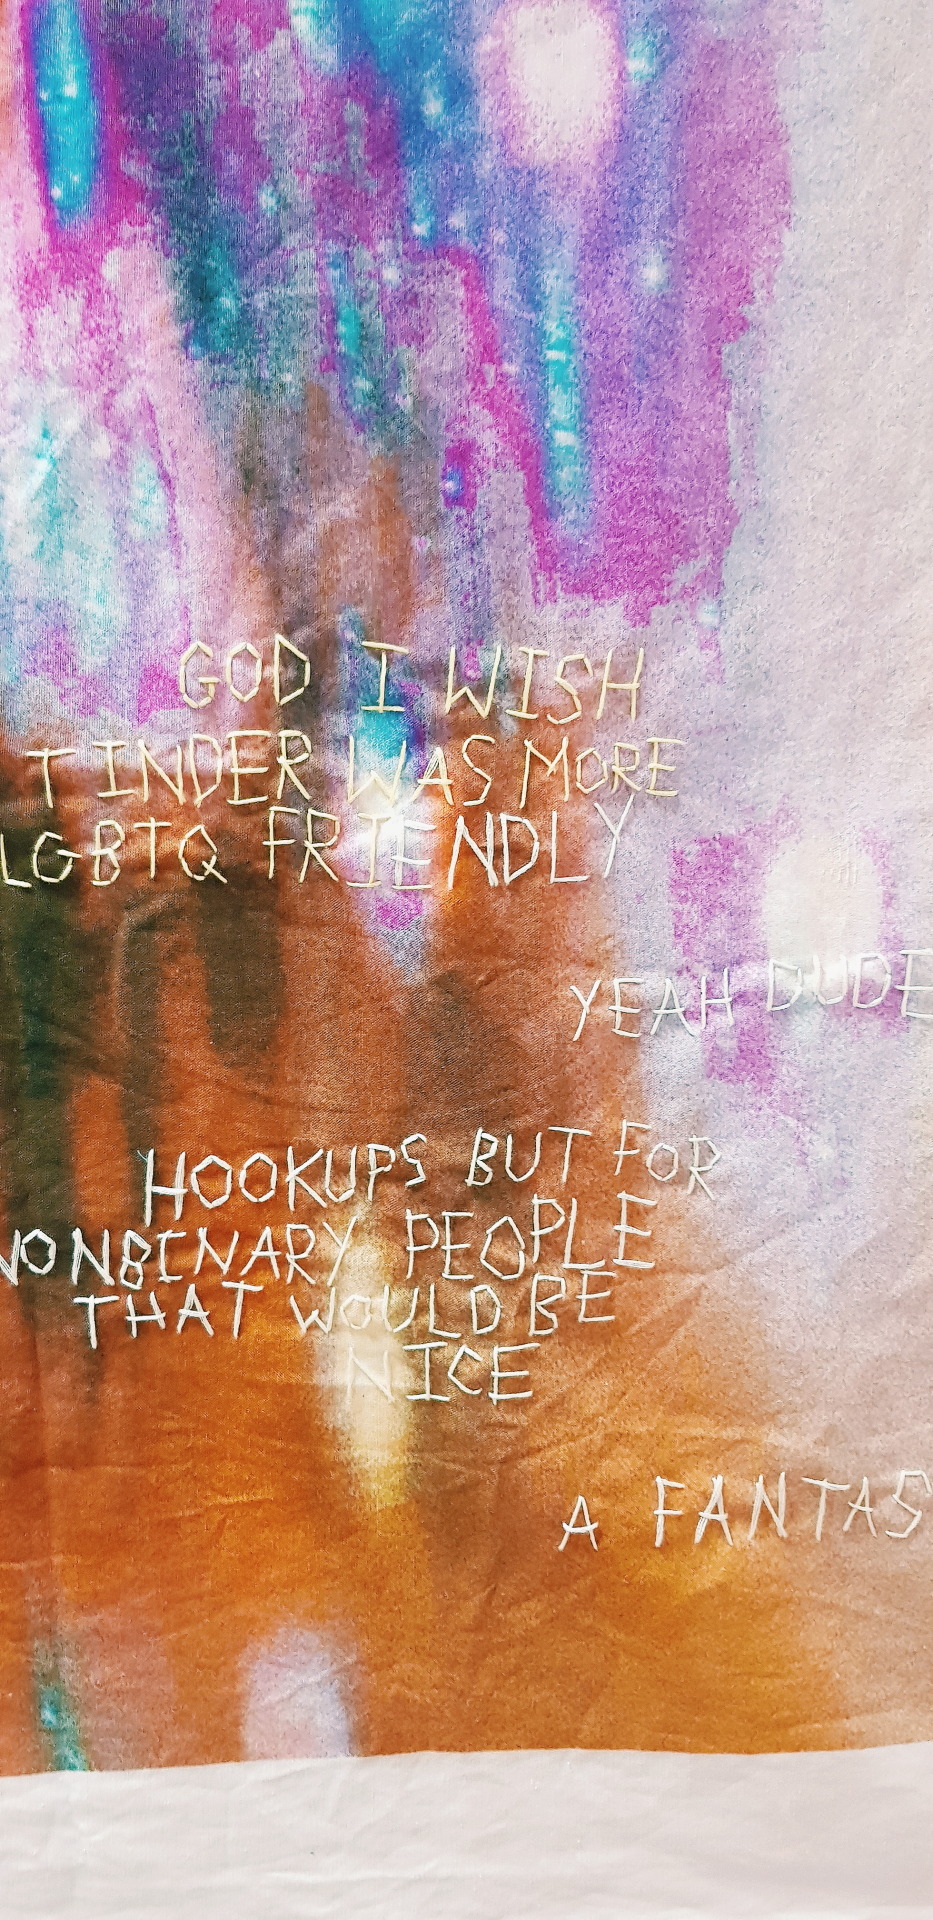 GOD I WISH
TINDER WAS MORE
LGBTQ FRIENDLY
YEAH DUDE
HOOKUPS BUT FOR
NONBINARY PEOPLE
THAT WOULD BE
NICE
A FANTAS